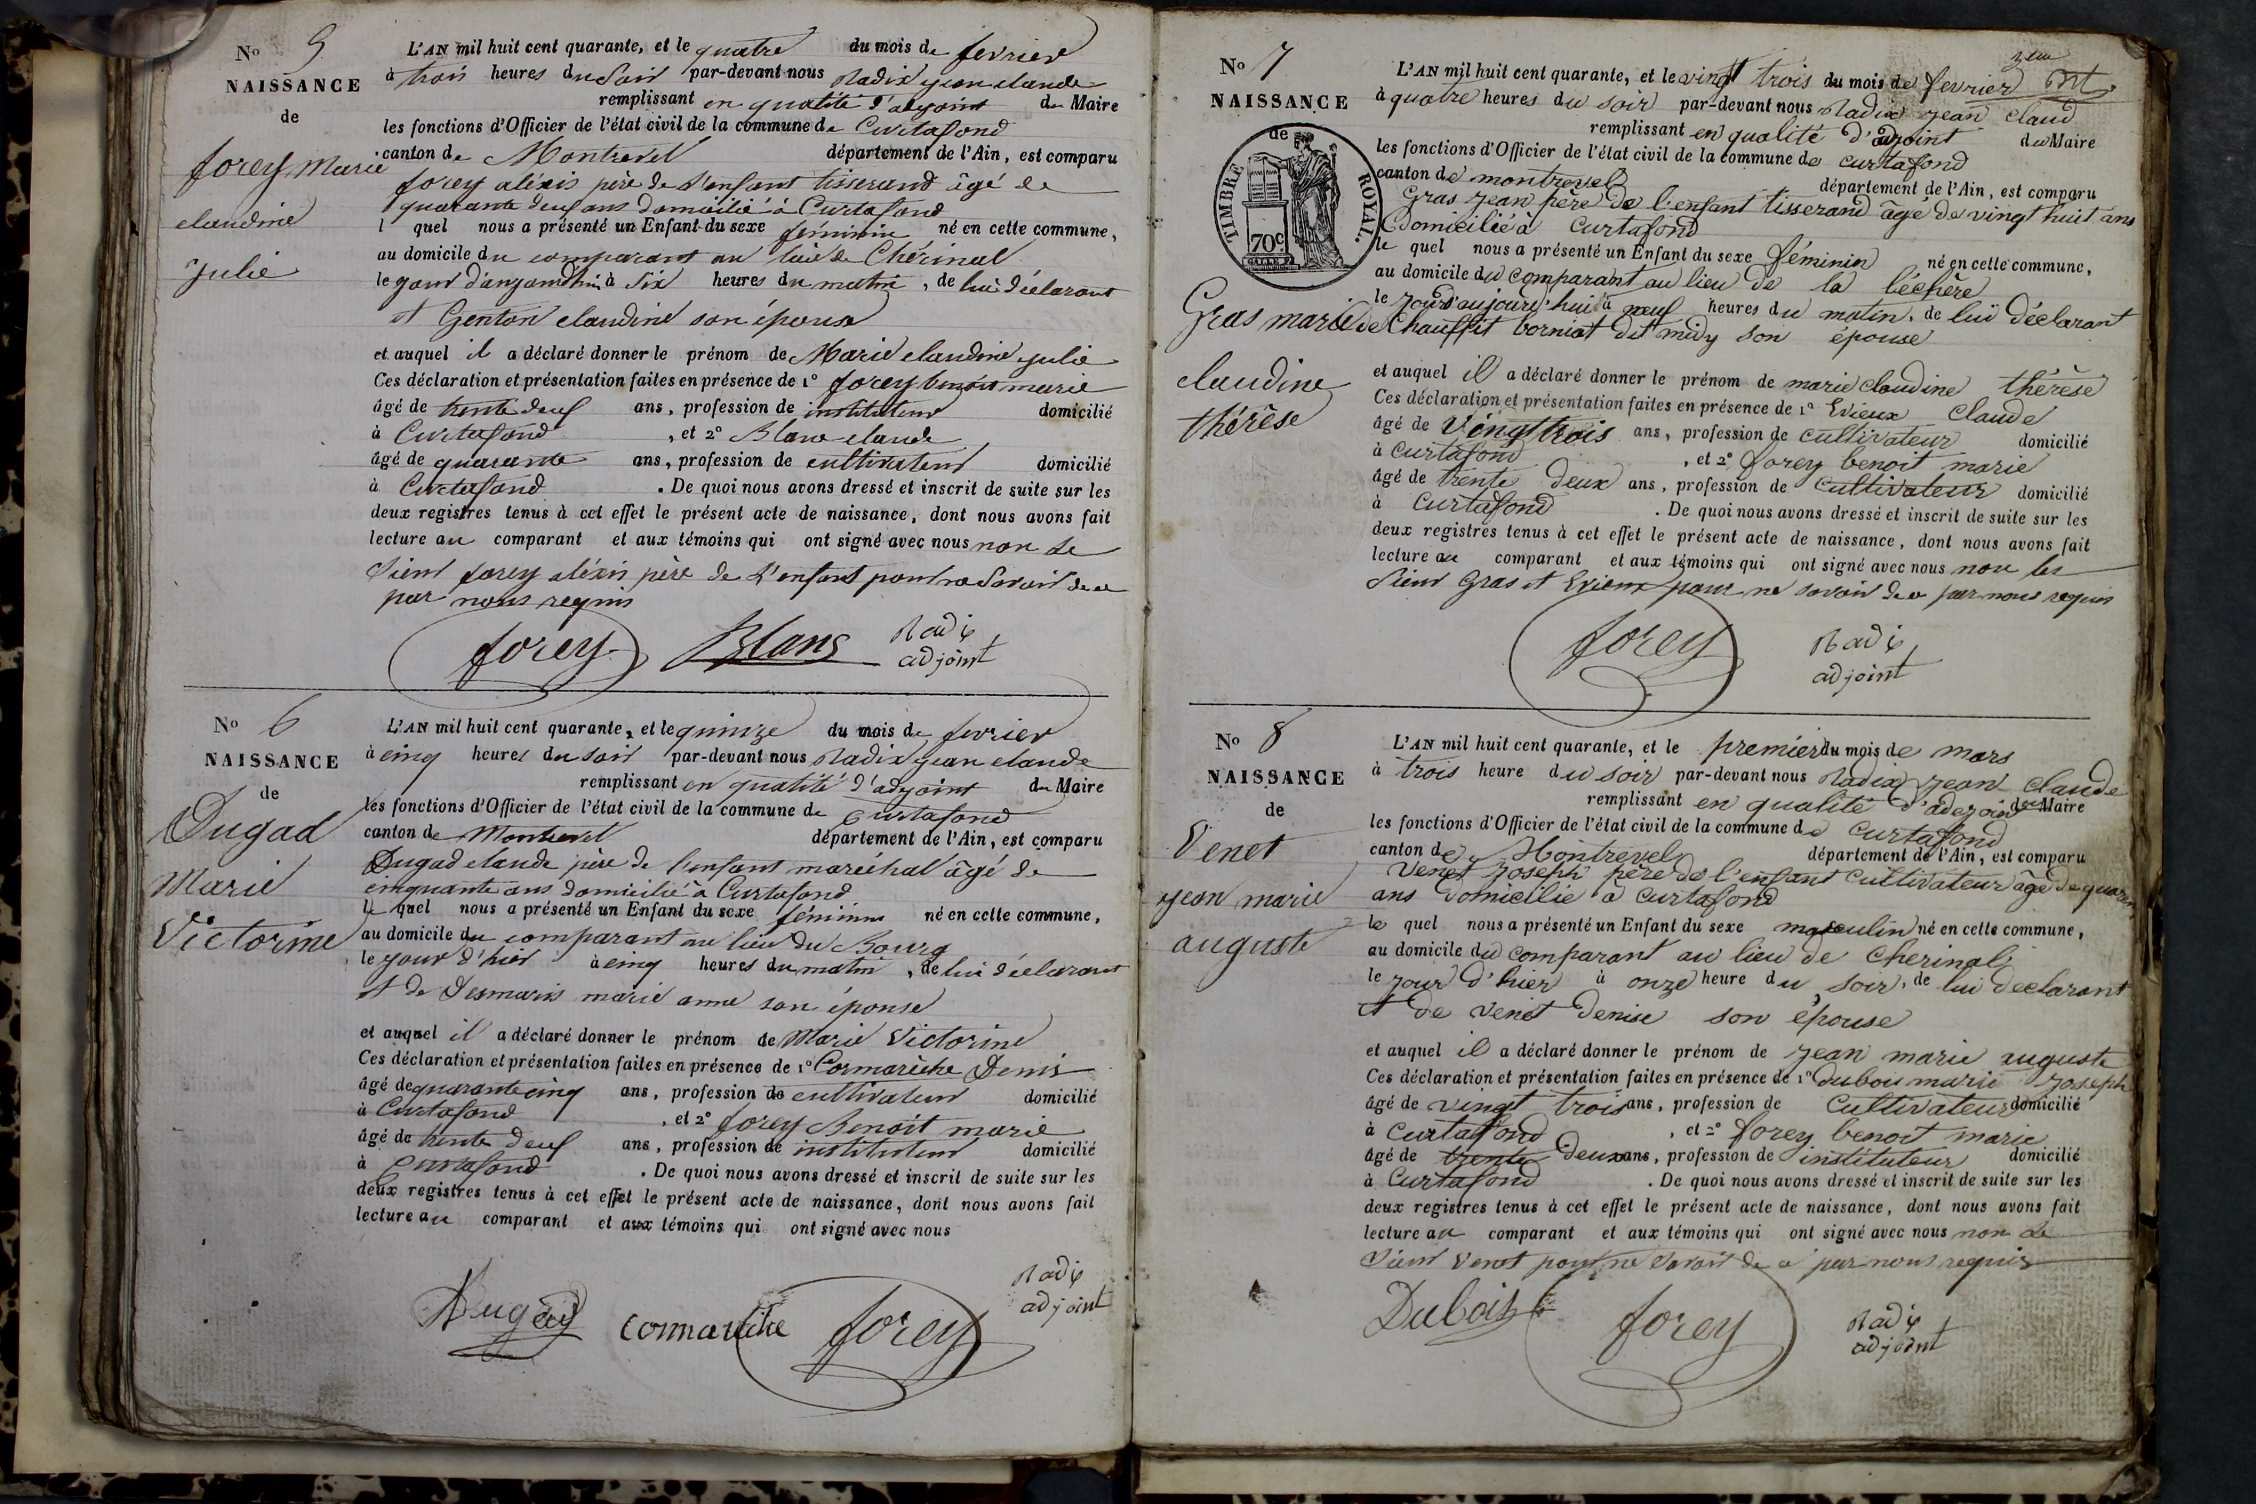 No 5
NAISSANCE
de
forey Marie
claudine
julie
L'AN mil huit cent quarante, et le quatre du mois de fevrier
à trois heures du Soir par-devant nous Radix jean claude
remplissant en qualité d'adjoint du Maire
les fonctions d'Officier de l'état civil de la commune de Curtafond
canton de Montrevel département de l'Ain, est comparu
forey aléxis père de l'enfant tisserand âgé de
quarante deux ans domicilié à Curtafond
l quel nous a présenté un Enfant du sexe féminin né en cette commune,
au domicile du comparant au lieu de Chérinal
le jour d'aujourd'hui à Six heures du matin, de lui déclarant
et Genton claudine son épouse
et auquel il a déclaré donner le prénom de Marie claudine julie
Ces déclaration et présentation faites en présence de 1° forey benoit marie
âgé de trente deux ans, profession de instituteur domicilié
à Curtafond, et 2° Blanc claude
âgé de quarante ans, profession de cultivateur domicilié
à Curtafond. De quoi nous avons dressé et inscrit de suite sur les
deux registres tenus à cet effet le présent acte de naissance, dont nous avons fait
lecture au comparant et aux témoins qui ont signé avec nous non le
Sieur forey aléxis père de l'enfant pour ne Savoir de ce
par nous requis
forey Blanc Radix
adjoint
No 6
NAISSANCE
de
Dugad
Marie
Victorine
L'AN mil huit cent quarante, et le quinze du mois de fevrier
à cinq heures du soir par-devant nous Radix jean claude
remplissant en qualité d'adjoint du Maire
les fonctions d'Officier de l'état civil de la commune de Curtafond
canton de Montrevel département de l'Ain, est comparu
Dugad claude père de l'enfant maréchal âgé de
cinquante ans domicilié à Curtafond
le quel nous a présenté un Enfant du sexe féminin né en cette commune,
au domicile du comparant au lieu du Bourg
le jour d'hier à cinq heures du matin, de lui déclarant
et de Desmaris marie anne son épouse
et auquel il a déclaré donner le prénom de Marie Victorine
Ces déclaration et présentation faites en présence de 1° Cormarèche Denis
âgé de quarante cinq ans, profession de cultivateur domicilié
à Curtafond, et 2° forey Benoit marie
âgé de trente deux ans, profession de instituteur domicilié
à Curtafond. De quoi nous avons dressé et inscrit de suite sur les
deux registres tenus à cet effet le présent acte de naissance, dont nous avons fait
lecture au comparant et aux témoins qui ont signé avec nous
Dugad Cormarèche forey Radix
adjoint
No 7
NAISSANCE
de
TIMBRE ROYAL.
70c.
Gras marie
claudine
thérèse
L'AN mil huit cent quarante, et le vingt trois du mois de fevrier
à quatre heures du soir par-devant nous Radix jean claud
remplissant en qualité d'adjoint du Maire
les fonctions d'Officier de l'état civil de la commune de curtafond
canton de montrevel département de l'Ain, est comparu
Gras jean père de l'enfant tisserand âgé de vingt huit ans
Domicilié à curtafond
le quel nous a présenté un Enfant du sexe féminin né en cette commune,
au domicile du comparant au lieu de la léchère
le jour d'aujourd'hui à neuf heures du matin, de lui déclarant
de Chauffit borniat dit midy son épouse
et auquel il a déclaré donner le prénom de marie claudine thérèse
Ces déclaration et présentation faites en présence de 1° Evieux Claude
âgé de vingt trois ans, profession de cultivateur domicilié
à curtafond, et 2° forey benoit marie
âgé de trente deux ans, profession de cultivateur domicilié
à curtafond. De quoi nous avons dressé et inscrit de suite sur les
deux registres tenus à cet effet le présent acte de naissance, dont nous avons fait
lecture au comparant et aux témoins qui ont signé avec nous non les
Sieur Gras et Evieux pour ne savoir de ce par nous requis
forey Radix
adjoint
No 8
NAISSANCE
de
Venet
jean marie
auguste
L'AN mil huit cent quarante, et le premier du mois de mars
à trois heure du soir par-devant nous Radix jean claude
remplissant en qualité d'adjoint du Maire
les fonctions d'Officier de l'état civil de la commune de curtafond
canton de Montrevel département de l'Ain, est comparu
Venet Joseph père de l'enfant cultivateur âgé de quarante
ans domicilié à curtafond
le quel nous a présenté un Enfant du sexe masculin né en cette commune,
au domicile du comparant au lieu de cherinal
le jour d'hier à onze heure du soir, de lui declarant
et de Venet Denise son épouse
et auquel il a déclaré donner le prénom de jean marie auguste
Ces déclaration et présentation faites en présence de 1° Dubois marie Joseph
âgé de vingt trois ans, profession de cultivateur domicilié
à curtafond, et 2° forey benoit marie
âgé de trente deux ans, profession de instituteur domicilié
à Curtafond. De quoi nous avons dressé et inscrit de suite sur les
deux registres tenus à cet effet le présent acte de naissance, dont nous avons fait
lecture au comparant et aux témoins qui ont signé avec nous non le
Sieur Venet pour ne savoir de ce par nous requis
Dubois forey Radix
adjoint